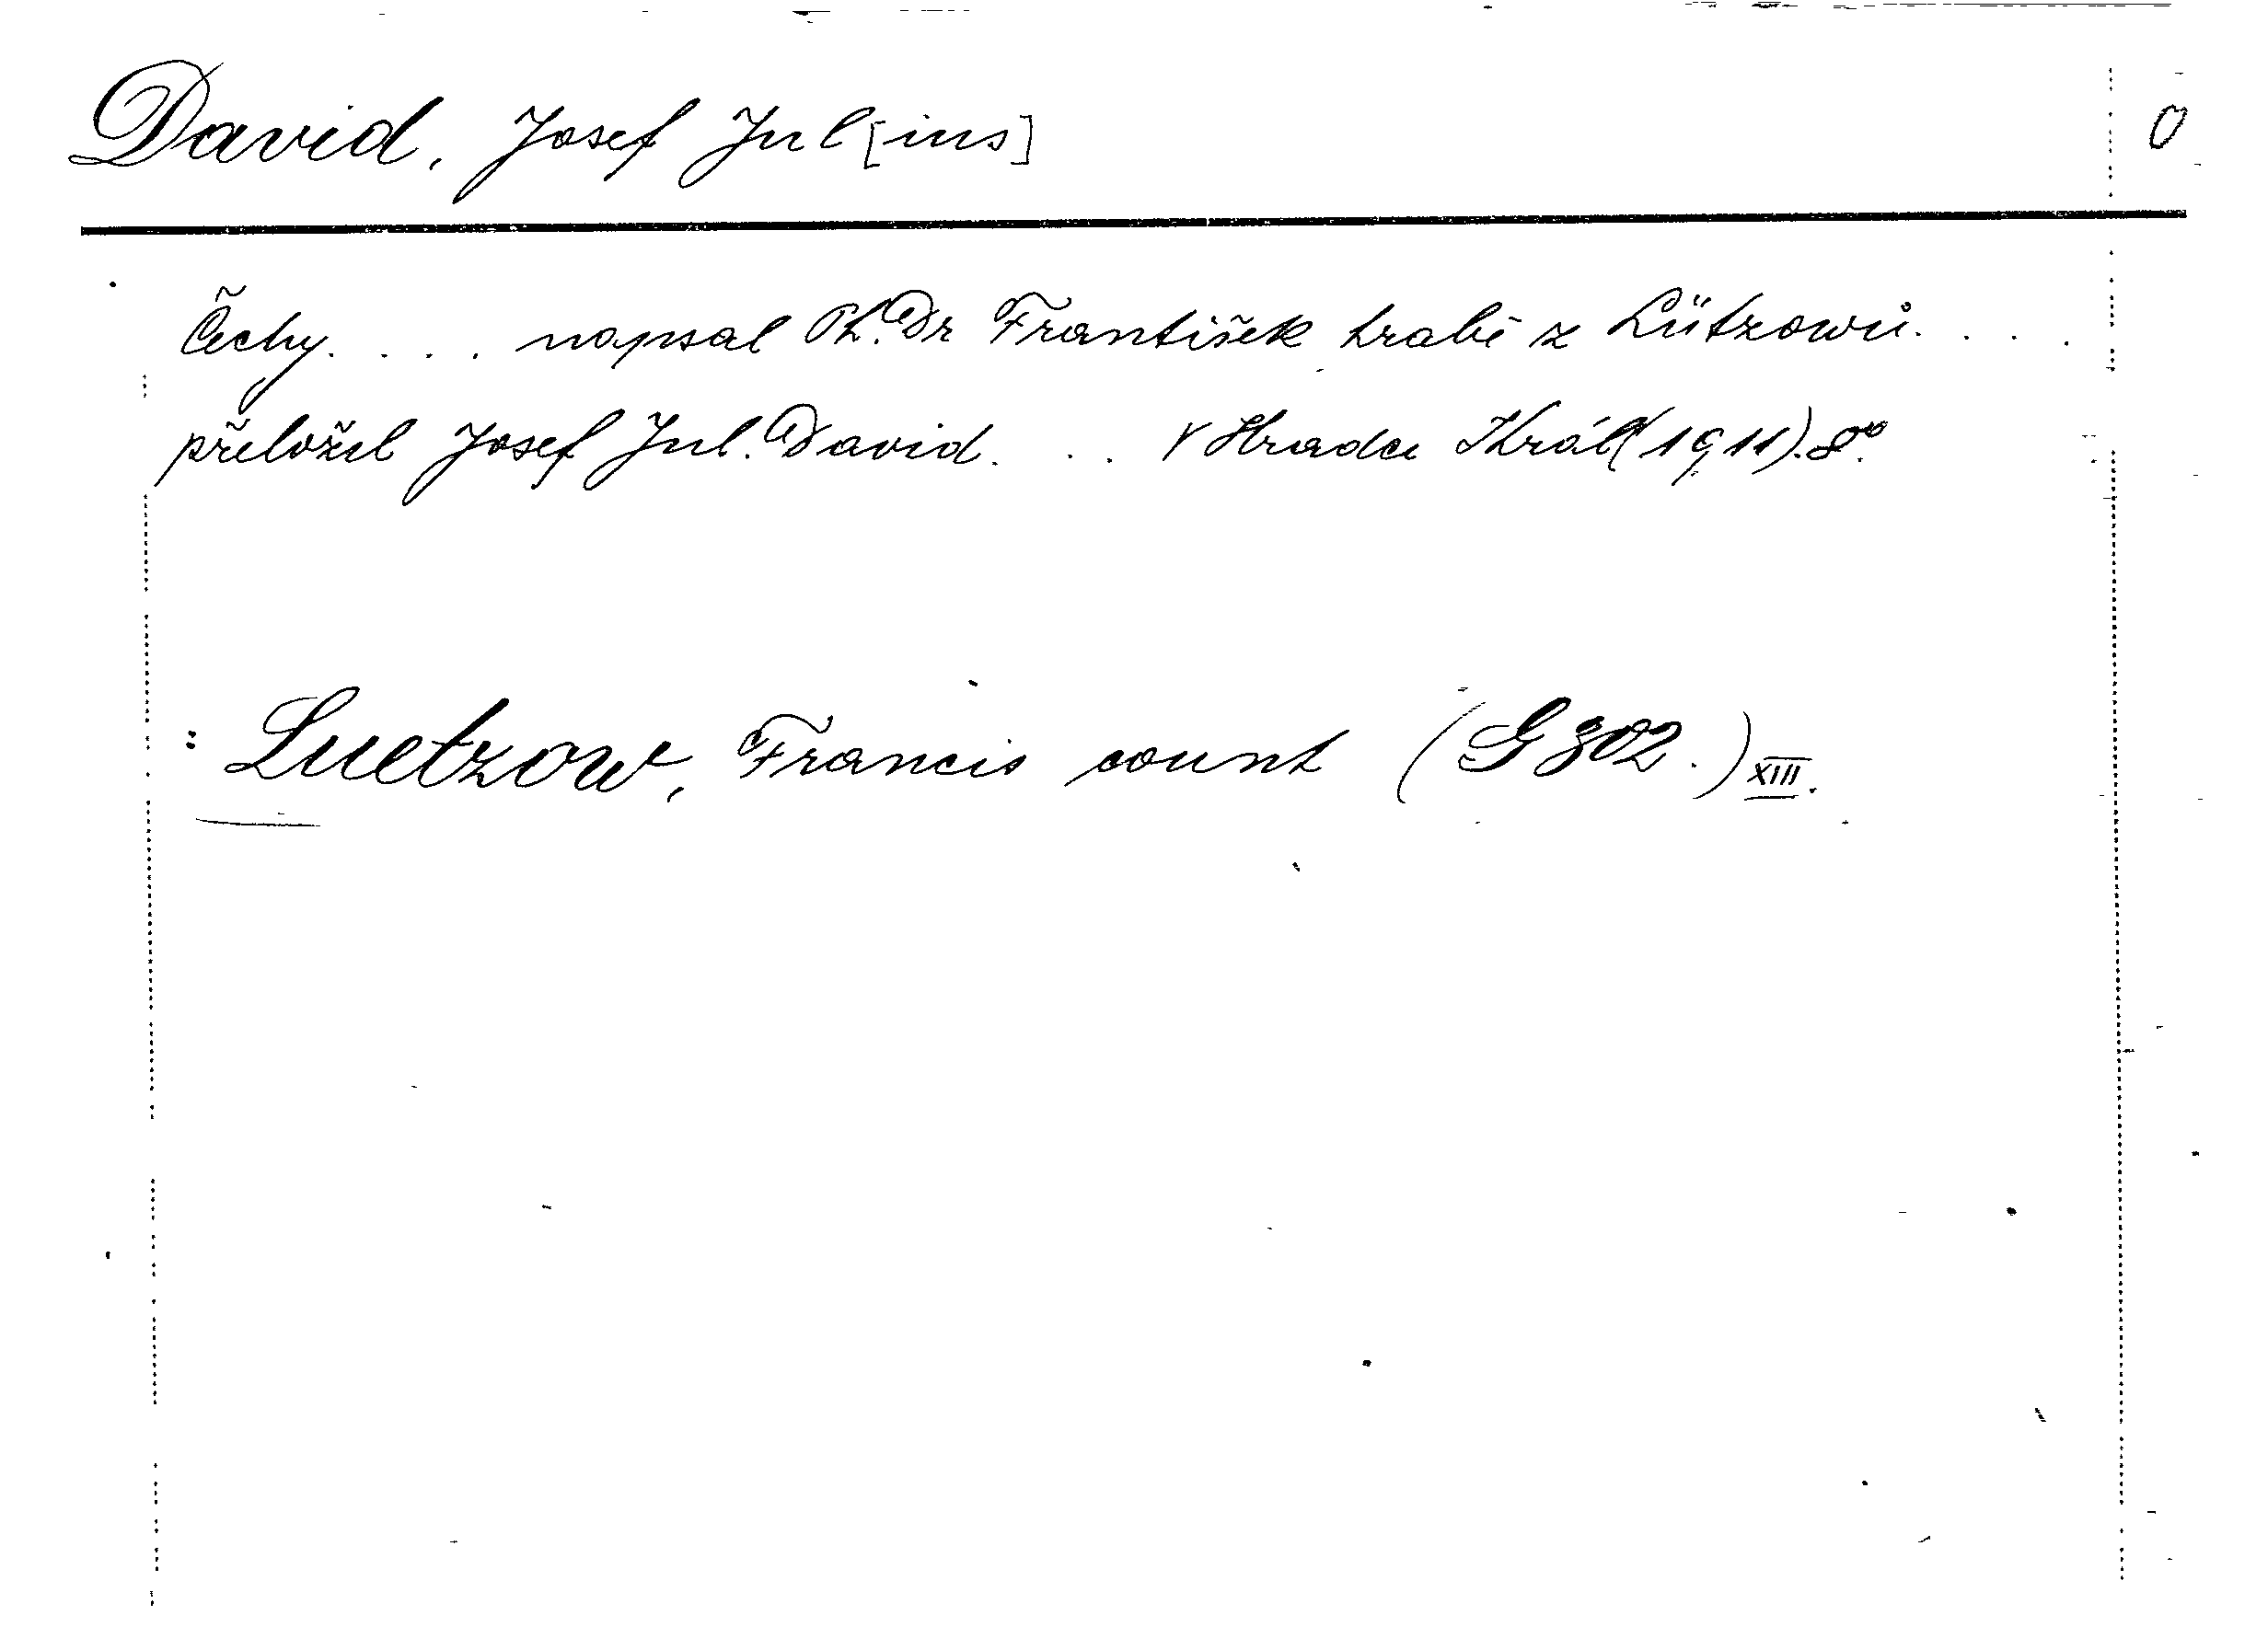 David, Josef Jul[ius] 0
Čechy. . . . napsal Ph. Dr František hrabě z Lützowů. . . .
přeložil Josef Jul. David. . . V Hradci Král(1911). 8°.
: Luetzow, Francis count (G 302.) XIII.